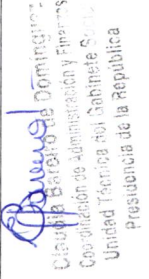 Claudia Bareiro de Domínguez
Coordinación de Administración y Finanzas
Unidad Técnica del Gabinete Social
Presidencia de la República